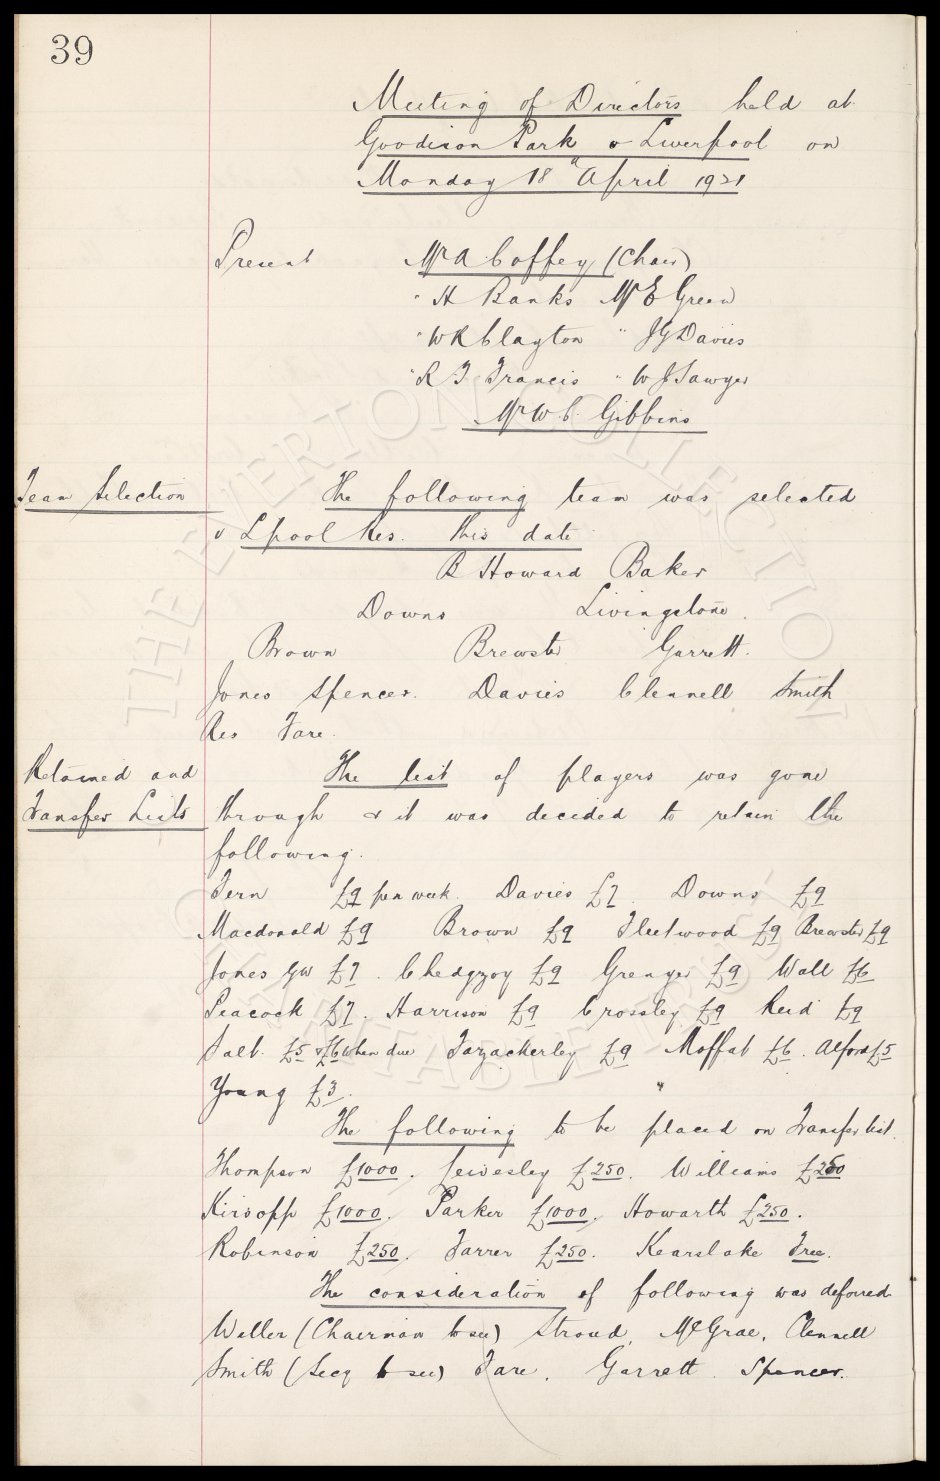 39
Meeting of Directors held at
Goodison Park & Liverpool on
Monday 18th April 1921
Present Mr A Coffey (Chair)
" H Banks Mr E Green
" W R Clayton " J G Davies
" R T Francis " W J Sawyer
Mr W. C. Gibbins
Team Selection The following team was selected
v Lpool Res. this date
B Howard Baker
Downs Livingstone.
Brown Brewster Garrett.
Jones Spencer. Davies Clennell Smith
Res Fare.
Retained and The list of players was gone
Transfer Lists through & it was decided to retain the
following.
Fern £9 per week. Davies £7. Downs £9
Macdonald £9 Brown £9 Fleetwood £9 Brewster £9
Jones GW £7. Chedgzoy £9 Grenyer £9 Wall £6
Peacock £7. Harrison £9 Crossley £9 Reid £9
Salt. £5 & £6 when due Fazackerley £9 Moffat £6. Alford £5
Young £3.
The following to be placed on Transfer list.
Thompson £1000. Lewesley £250. Williams £250
Kirsopp £1000. Parker £1000. Howarth £250.
Robinson £250. Farrer £250. Kearslake Free.
The consideration of following was deferred
Weller (Chairman to see) Stroud, McGrae, Clennell
Smith (Secy to see) Fare. Garrett. Spencer.
THE EVERTON COLLECTION
CHARITABLE TRUST